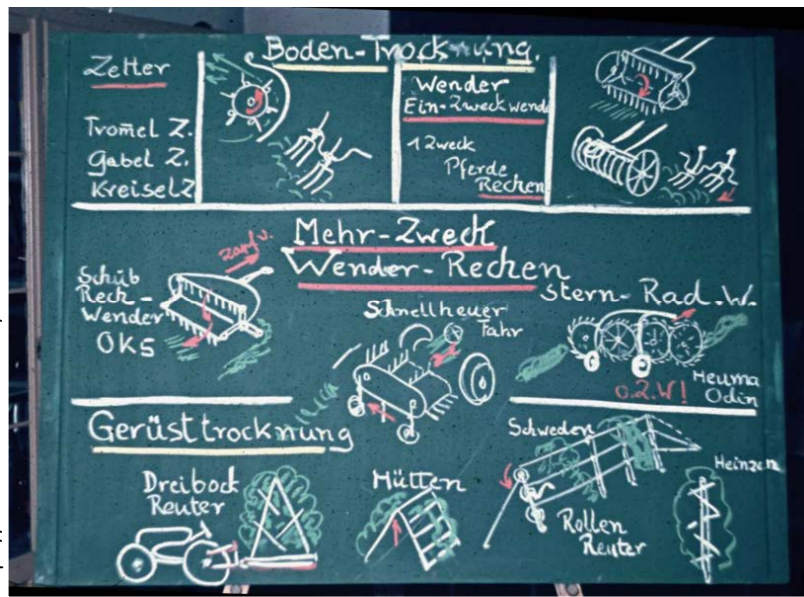 Boden-Trocknung.
Zetter
Tromel Z.
Gabel Z.
Kreisel Z
Wender
Ein-Zweckwend
1 Zweck
Pferde
Rechen
Mehr-Zweck
Wender-Rechen
Zapf.
Schub
Rech-
Wender
OKS
Schnellheuer
Fahr
Stern-Rad.W.
o.Z.W!
Heuma
Odin
Gerüsttrocknung
Dreibock
Reuter
Hütten
Schweden
Rollen
Reuter
Heinzen